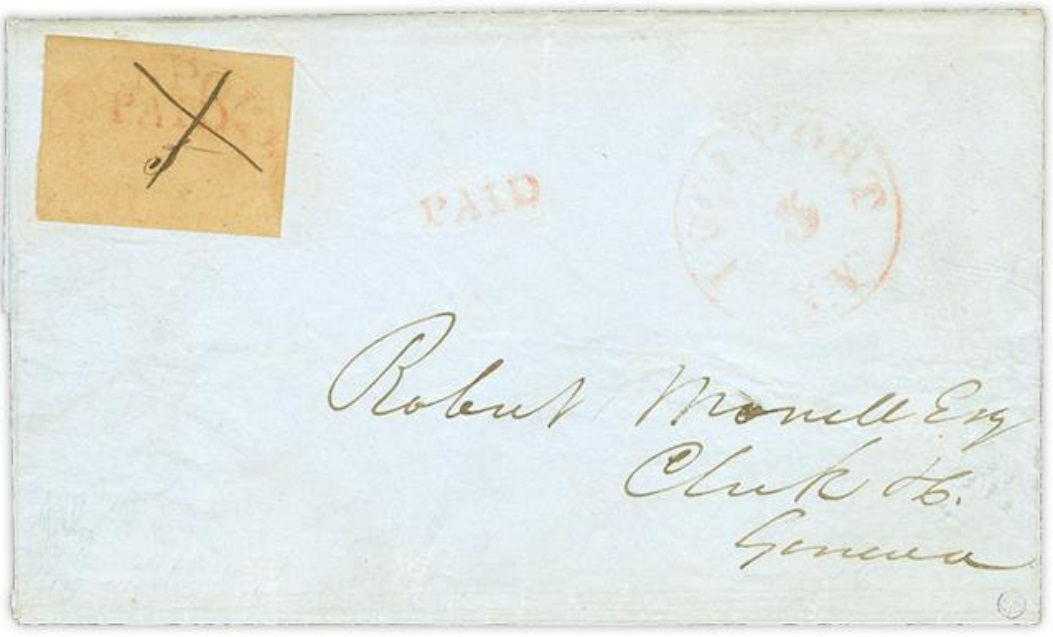 PAID
PAID
LOCKPORT N.Y
5
Robert Monell Esq
Clerk &c.
Geneva